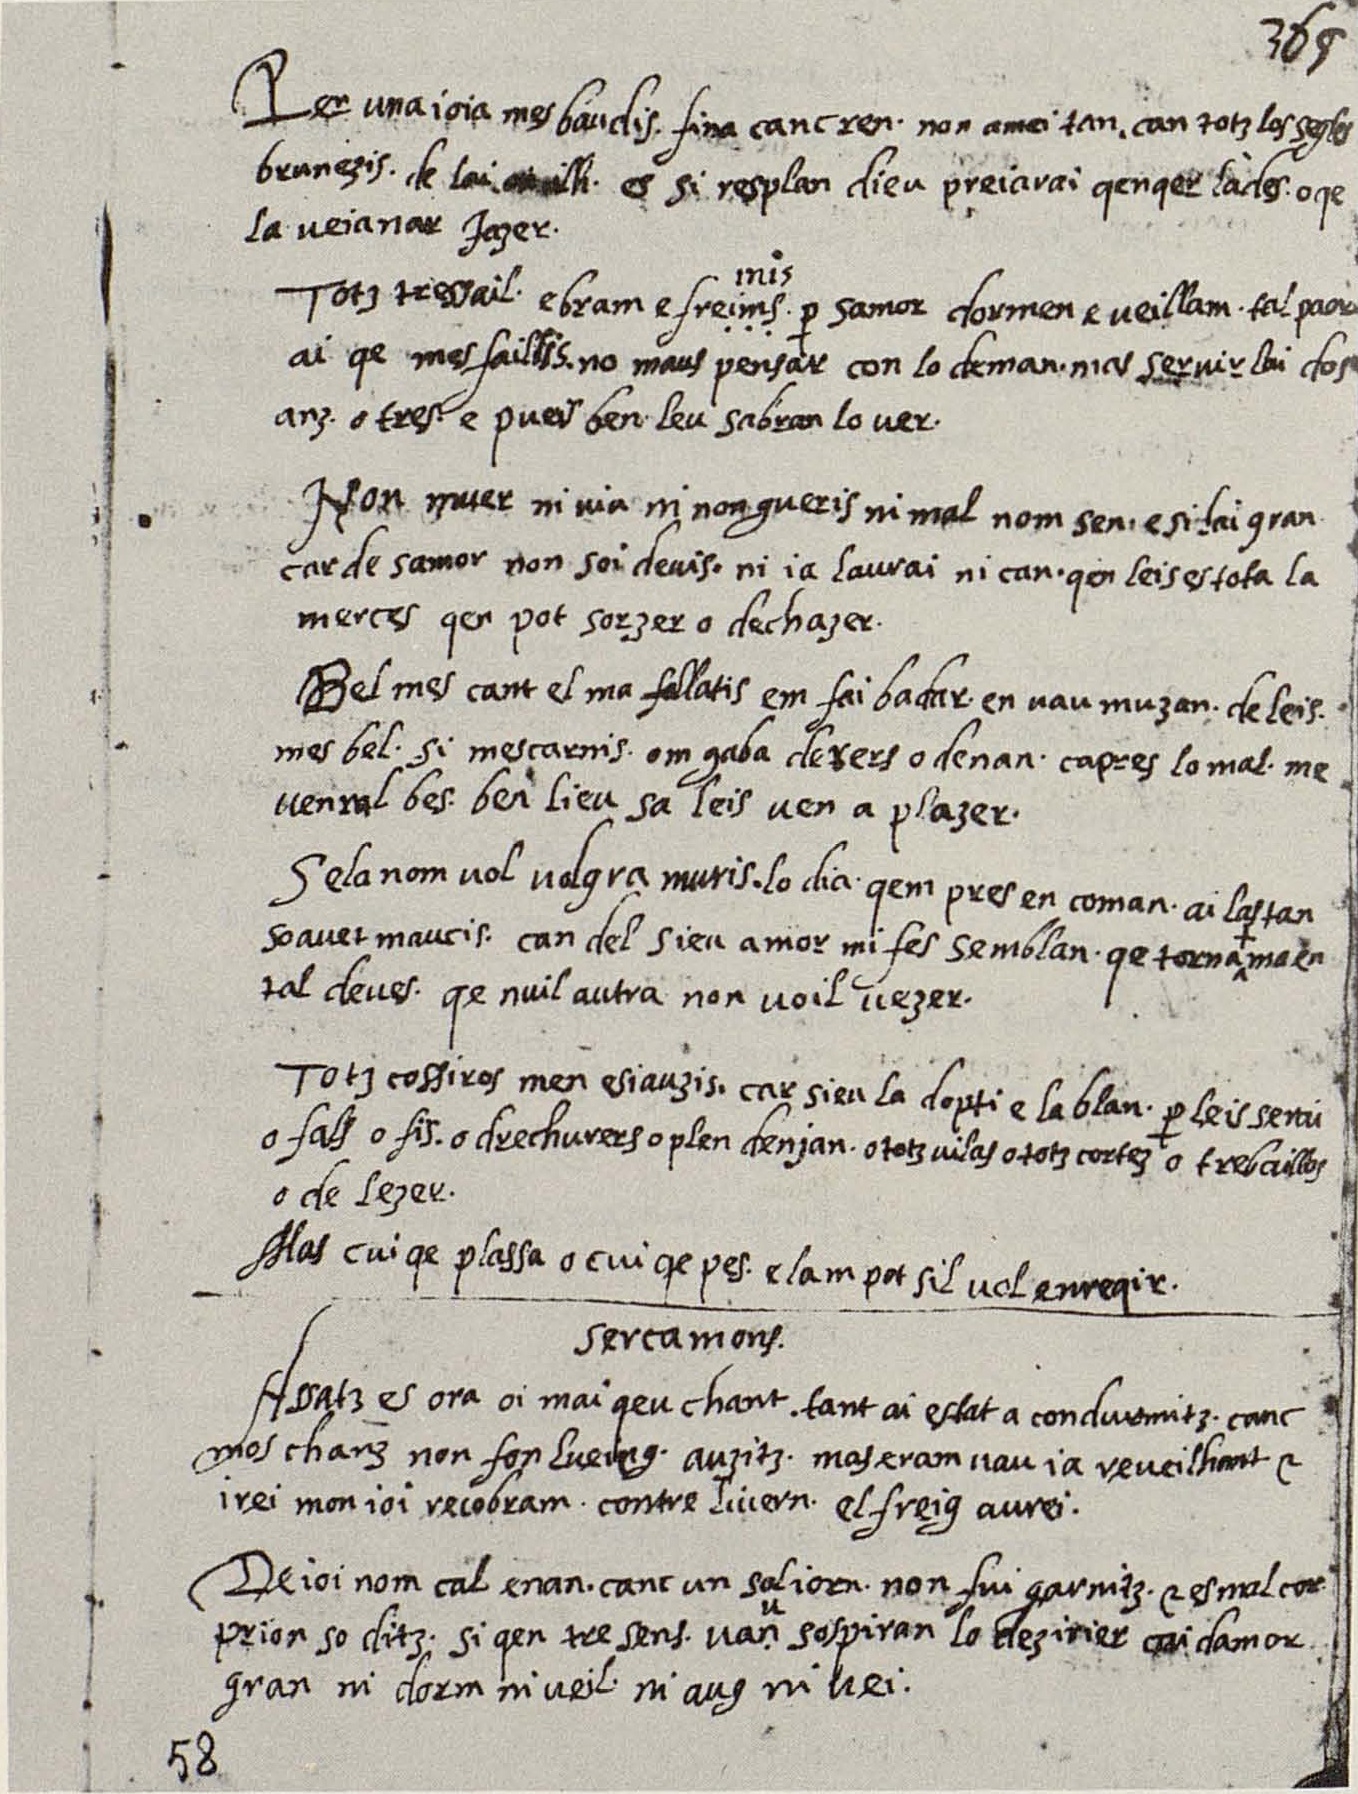 365
Per una ioia mes baudis. fina canc ren. non amei tan. can totz los segles
brunezis. de lai es si resplan dieu preiarai qenqer lades. o qe
la ueianar Jazer.
mis
Totz tressail. e bram e freims. ꝑ samor dormen e ueillam. tal paor
ai qe mes faillis. no maus pensar con lo deman. mas seruir lai dos
anz. o tres. e pueis ben leu sabran lo uer.
Non muer ni uia ni non gueris ni mal nom sen. e si lai gran
car de samor non soi deuis. ni ia laurai ni can. qen leis es tota la
merces qen pot sorzer o dechazer.
Bel mes cant el ma follatis em fai badar. en uau muzan. de leis.
mes bel. si mescarnis. om gaba derers o denan. capres lo mal. me
uenral bes. ben lieu sa leis uen a plazer.
Sela nom uol uolgra muris. lo dia. qem pres en coman. ai las tan
soauet maucis. can del sieu amor mi fes semblan. qe torna t ma en
tal deues. qe nuil autra non uoil uezer.
Totz cossiros men esiauzis. car sieu la dopti e la blan. ꝑ leis serai
o fals o fis. o drechurers o plen denjan. o totz uilas o totz cortez o trebaillos
o de lezer.
Mas cui qe plassa o cui qe pes. elam pot sil uol enreqir.
sercamons.
Assatz es ora oi mai qeu chant. tant ai estat a condurmitz. canc
mos chanz non fon lueing. auzitz. mas eram uau ia reueilhant et
irei mon ioi recobram. contre liuern. el freig aurei.
De ioi nom cal enan. canc un sol iorn. non fui garnitz. et es mal cor
prion so ditz. si qen tresens. uau sospiran lo dezirier cai damor
gran ni dorm ni ueil. ni aug ni uei.
58